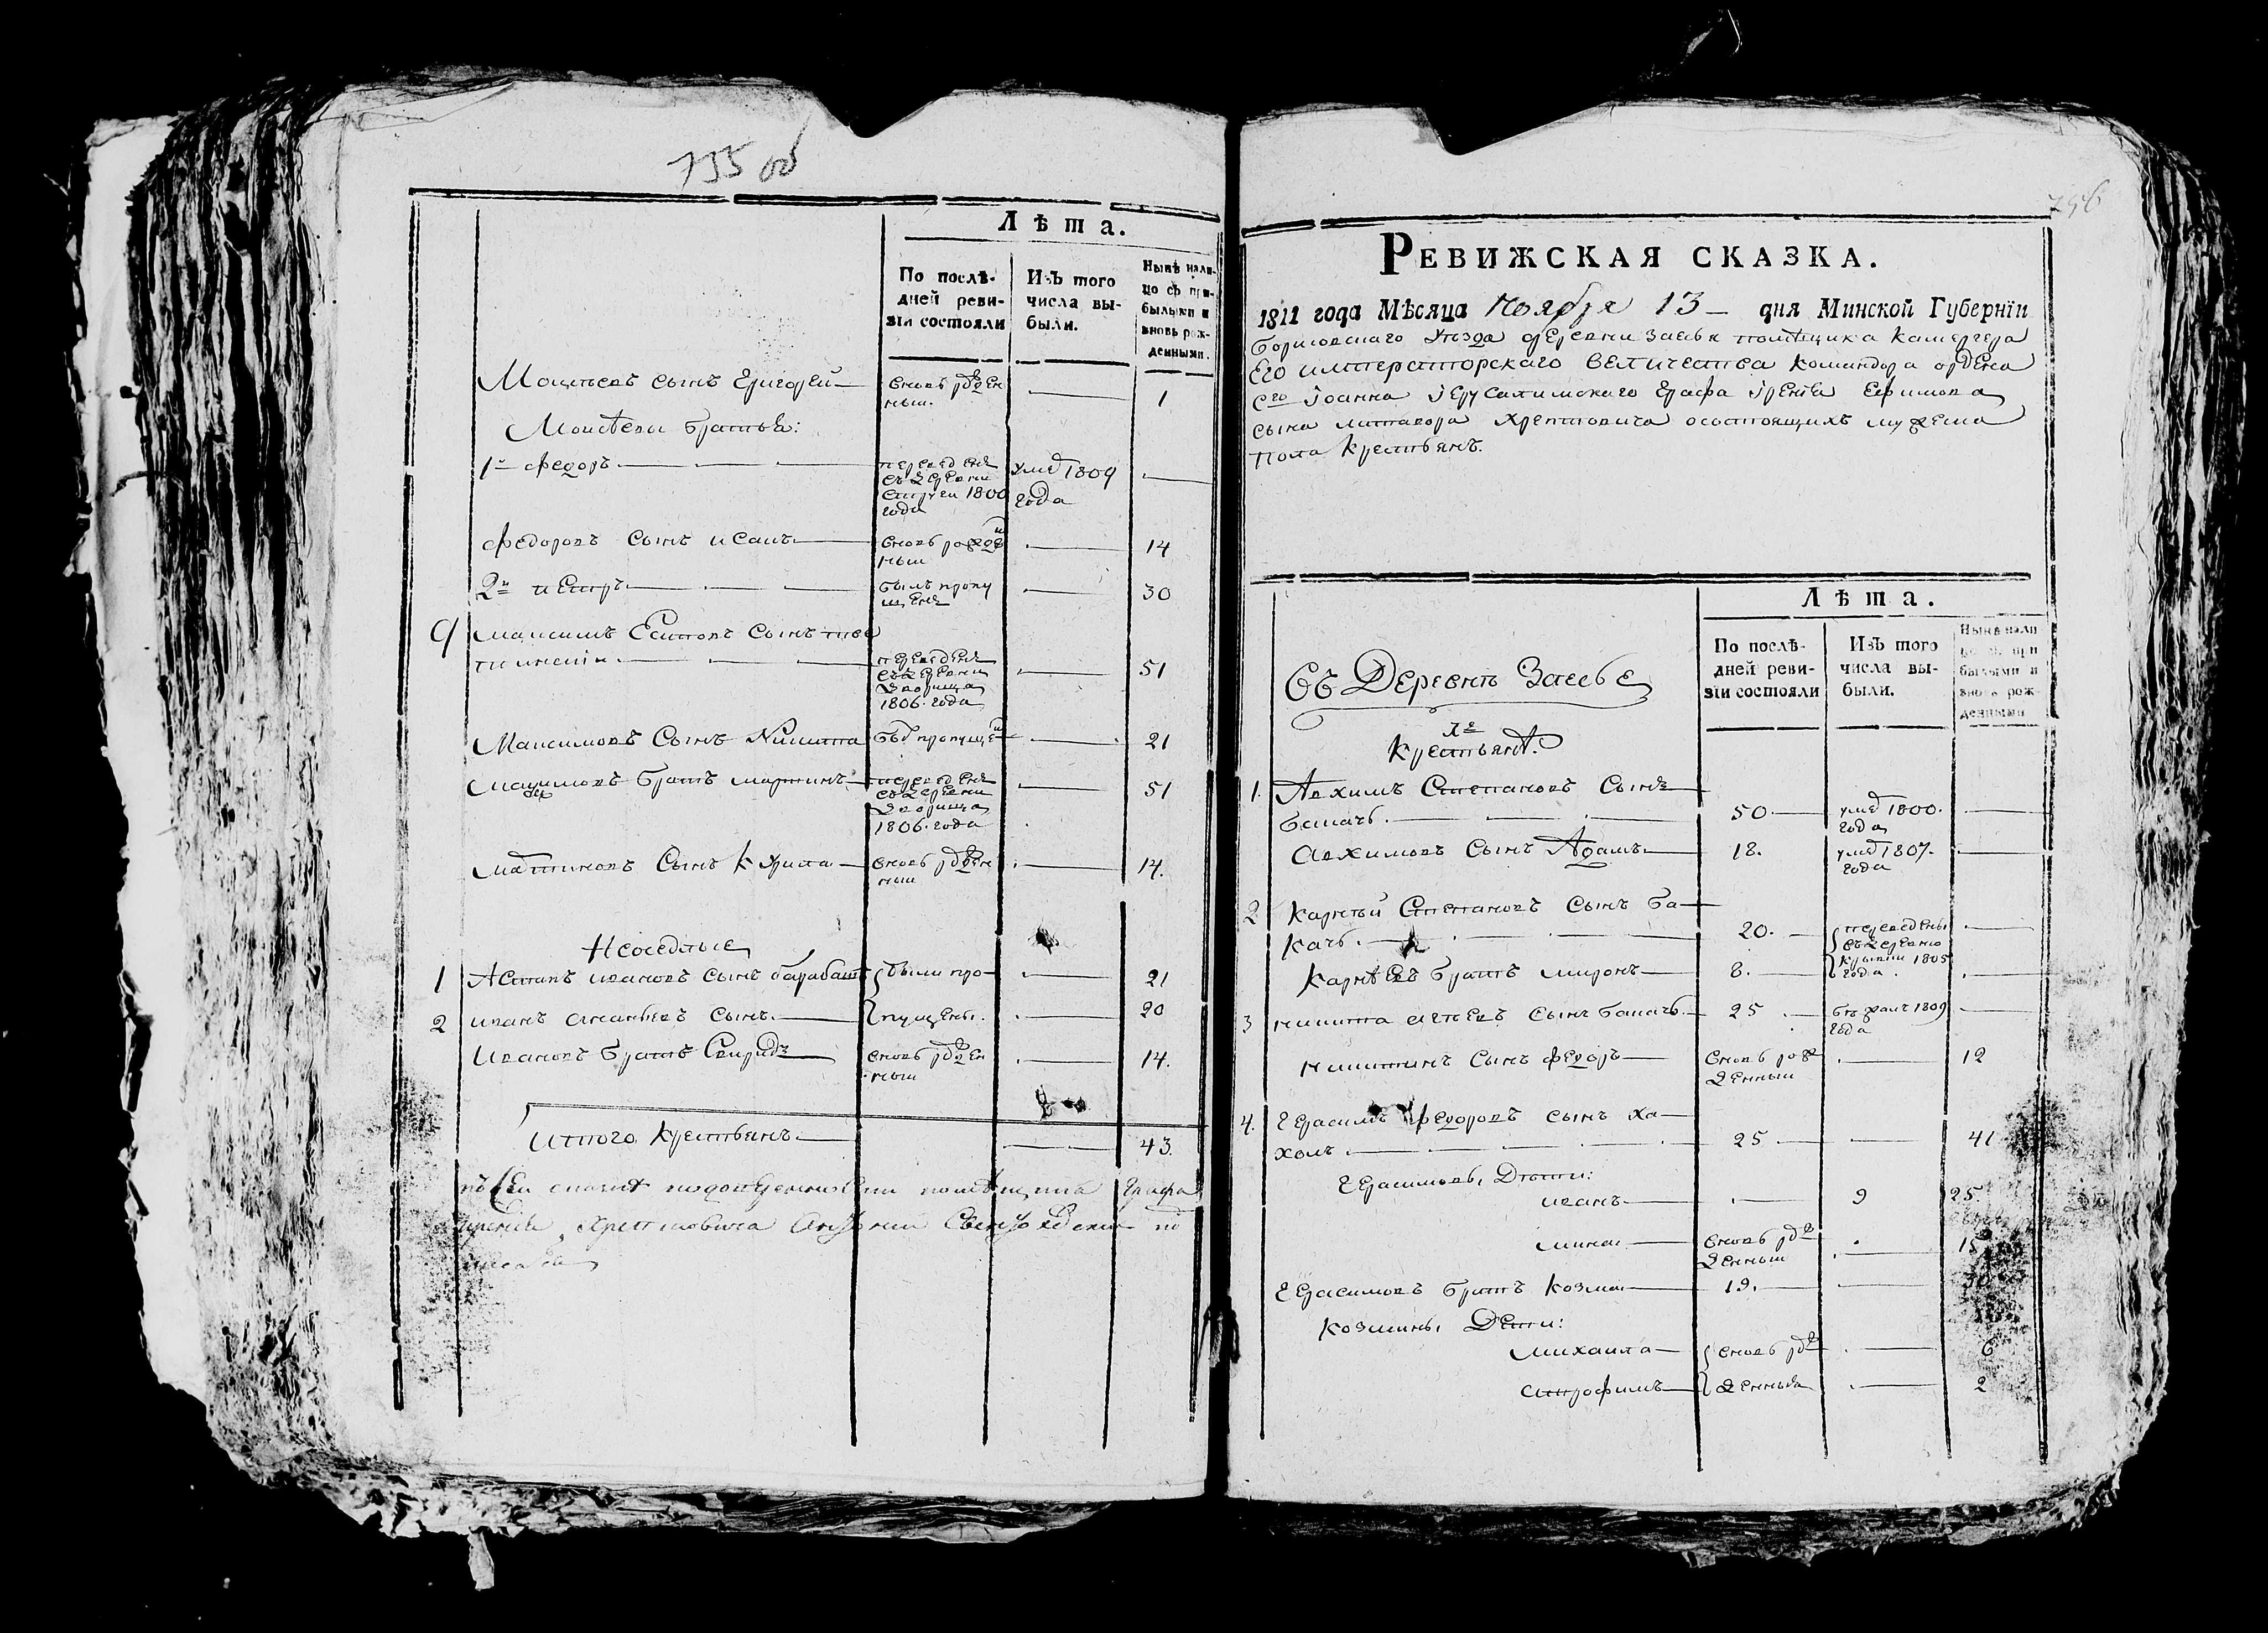 755 об
Лѣта.
По послѣ-
дней реви-
зіи состояли
Изъ того
числа вы-
были.
Нынѣ нали-
цо съ при-
былыми и
вновь рож-
денными.
Моисѣевъ сынъ Григорей вновь рожден
ный. 1
Моисѣевы братья:
1й Федоръ переведенъ умер 1809
съ деревни
1800 года
года
Федоровъ сынъ Исакъ вновь рожден 14
ный
2й Петръ былъ пропу 30
щенъ
9 Максимъ Есиповъ сынъ
переведенъ 51
съ деревни
Дворища
1806 года
Максимовъ сынъ Никита был пропущен 21
Максимовъ братъ Мартинъ переведенъ 51
съ деревни
Дворища
1806 года
Мартиновъ сынъ Кирила вновь рожден 14.
ный
Неоседлые
1 Астапъ Ивановъ сынъ Барабаш были про- 21
2 Иванъ Ананьевъ сынъ пущены. 20
Ивановъ братъ Свиридъ вновь рожден 14.
ный
Итого крестьянъ 43.
помѣщика Графа
Хрептовича
756
Ревижская сказка.
1811 года Мѣсяца Ноября 13 дня Минской Губерніи
Борисовскаго уѣзда деревни Заебья помѣщика камергера
Его императорскаго величества командора ордена
сго Іоанна Іерусалимскаго Графа Іренѣа Ефимова
сына Литавора Хрептовича осостоящихъ мужеска
пола крестьянъ.
Лѣта.
По послѣ-
дней реви-
зіи состояли
Изъ того
числа вы-
были.
Нынѣ нали
цо съ при
былыми и
вновь рож-
денными
Въ Деревнѣ Заебье
Крестьянѣ.
1. Авхимъ Степановъ Сынъ
Бакачъ. 50 умер 1800.
года
Авхимовъ Сынъ Адамъ 18. умер 1807.
года
2 Карнѣй Степановъ Сынъ Ба
качъ. 20. переведены
въ деревню
Карнѣевъ братъ Миронъ 8. 1805
года.
3 Никита Сынъ Бакачъ 25 бѣжалъ 1809
года
Никитинъ Сынъ Федоръ вновь рож 12
денный
4. Герасимъ Федоровъ сынъ Ха
холъ 25 41
Герасимовы Дѣти:
Иванъ 9 25
Мина вновь рож
денный
Герасимовъ братъ Козма 19.
Козмины Дѣти:
Михаила вновь рож 6
Митрофимъ денныя 2